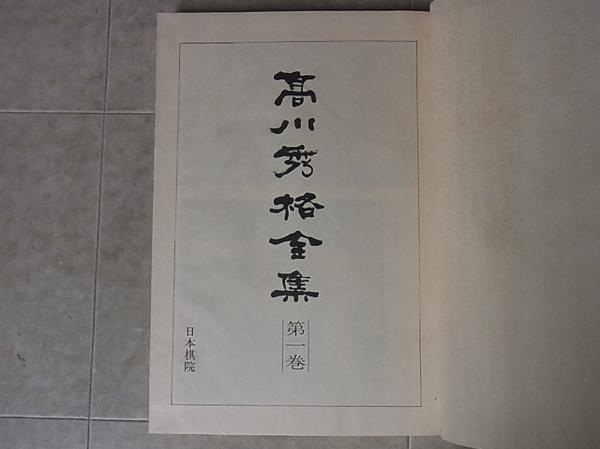 髙川秀格全集
第一巻
日本棋院